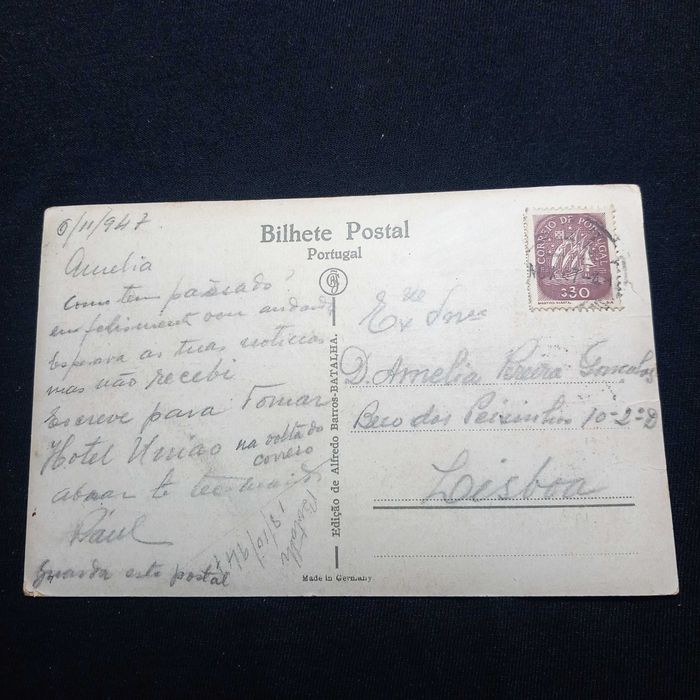 6/11/947
Amelia
como tem passado?
eu felismente vou andando
Esperava as tuas noticias
mas não recebi
Escreve para Tomar
Hotel União na volta do
correio
Raul
Guarda este postal
18/10/947
Bilhete Postal
Portugal
Edição de Alfredo Barros-BATALHA.
Made in Germany
CORREIO DE PORTUGAL
$30
Exma Snra
D. Amelia Pereira Gonçalves
Beco dos Peixinhos 10-2º D
Lisboa